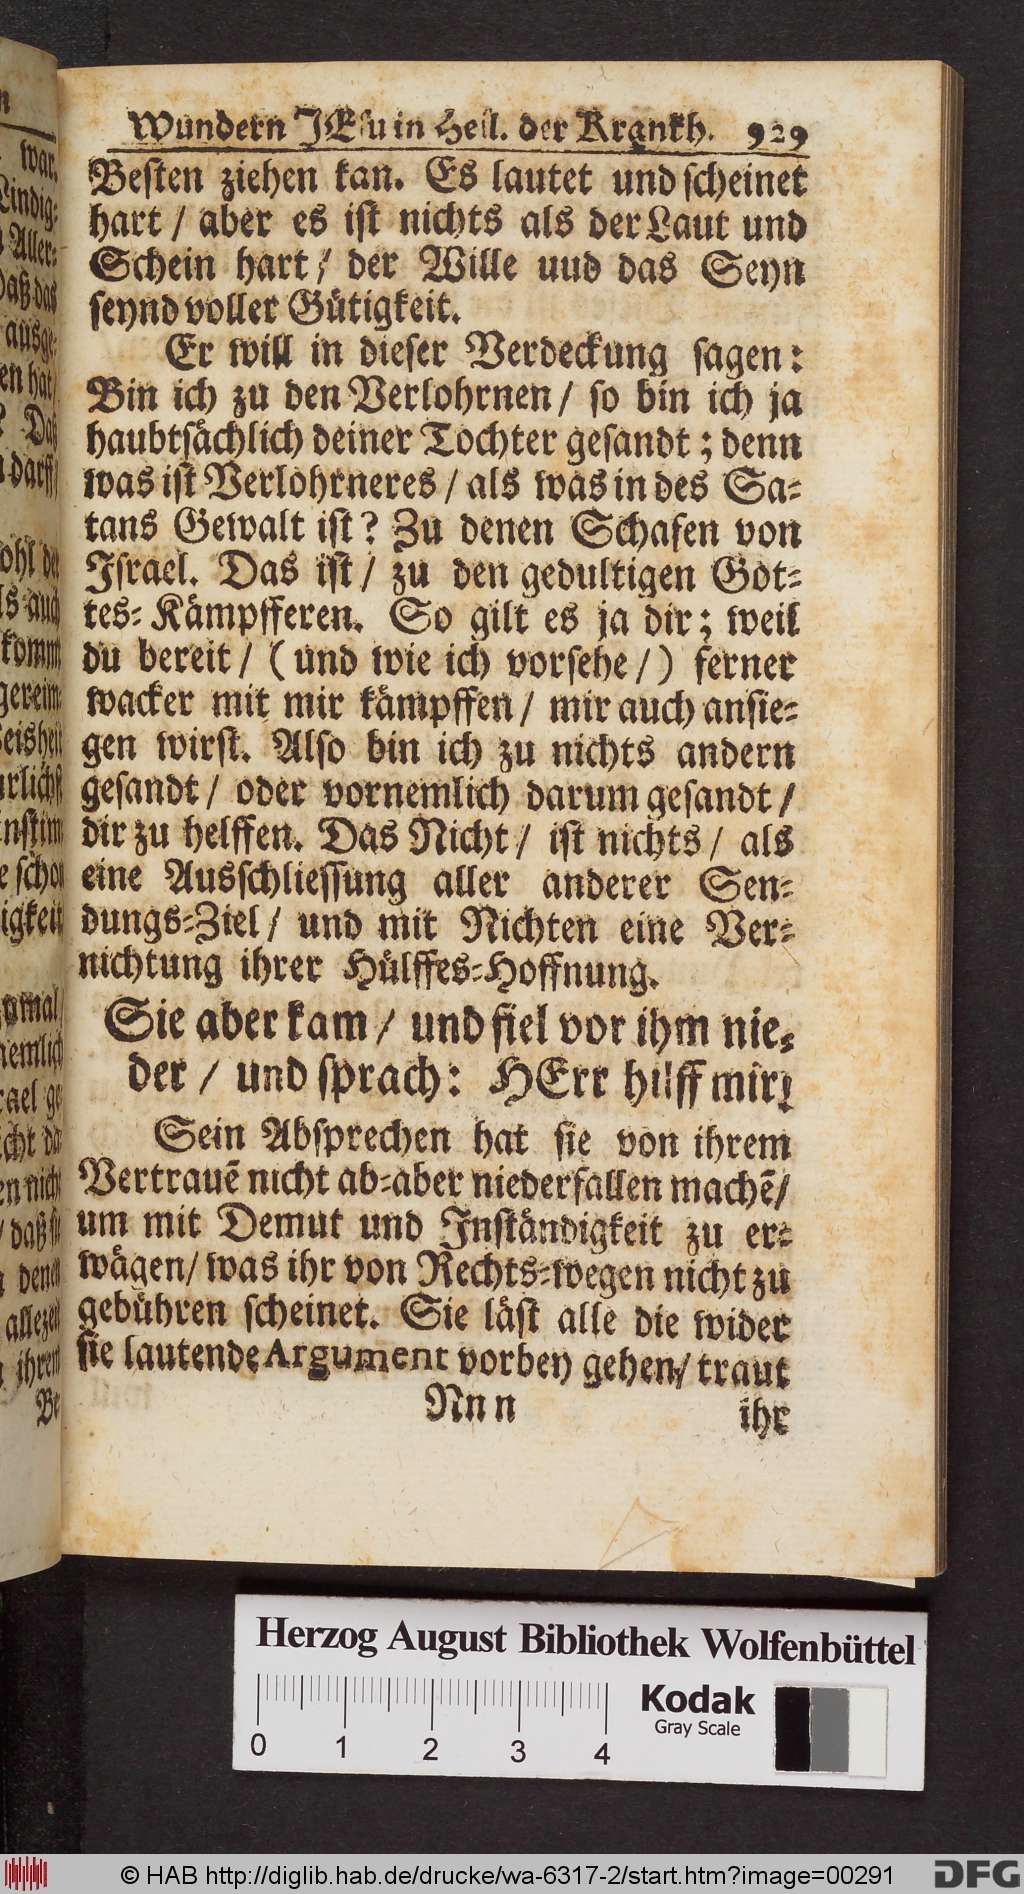 Wundern JEsu in Heil. der Krankh. 929
Besten ziehen kan. Es lautet und scheinet
hart / aber es ist nichts als der Laut und
Schein hart / der Wille uud das Seyn
seynd voller Gütigkeit.
Er will in dieser Verdeckung sagen:
Bin ich zu den Verlohrnen / so bin ich ja
haubtsächlich deiner Tochter gesandt; denn
was ist Verlohrneres / als was in des Sa-
tans Gewalt ist? Zu denen Schafen von
Israel. Das ist / zu den gedultigen Got-
tes-Kämpfferen. So gilt es ja dir; weil
du bereit / (und wie ich vorsehe /) ferner
wacker mit mir kämpffen / mir auch ansie-
gen wirst. Also bin ich zu nichts andern
gesandt / oder vornemlich darum gesandt /
dir zu helffen. Das Nicht / ist nichts / als
eine Ausschliessung aller anderer Sen-
dungs-Ziel / und mit Nichten eine Ver-
nichtung ihrer Hülffes-Hoffnung.
Sie aber kam / und fiel vor ihm nie-
der / und sprach: HErr hilff mir!
Sein Absprechen hat sie von ihrem
Vertrauẽ nicht ab-aber niederfallen machẽ/
um mit Demut und Inständigkeit zu er-
wägen/ was ihr von Rechts-wegen nicht zu
gebühren scheinet. Sie läst alle die wider
sie lautende Argument vorbey gehen/ traut
Nnn
ihr
war.
Lindig-
Aller-
Daß das
ausge-
en hat/
? Daß
darff/
ohl der
ls auch
kommt
gereim
eisheit
rlichst
nstim
e schon
igkeit
zumal
nemlich
rael ge
icht da
en nicht
/ daß sie
denen
allezeit
ihrem
Be
Herzog August Bibliothek Wolfenbüttel
Kodak
Gray Scale
0 1 2 3 4
© HAB http://diglib.hab.de/drucke/wa-6317-2/start.htm?image=00291
DFG